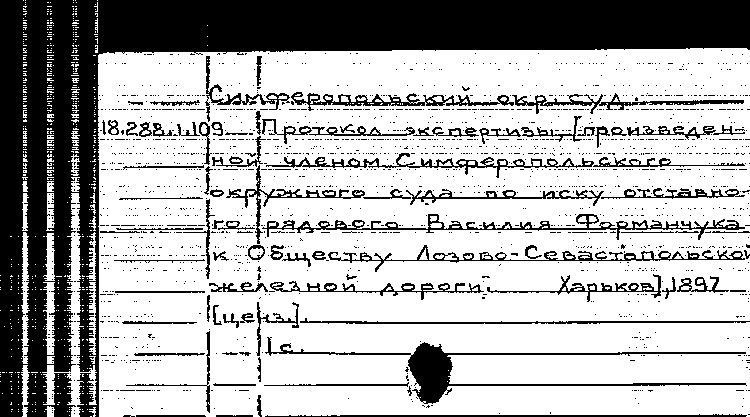 Симферопольский окр. суд.
18.288.1.109 Протокол экспертизы, [произведен-
ной членом Симферопольского
окружного суда по иску отставно-
го рядового Василия Форманчука
к Обществу Лозово-Севастопольской
железной дороги. Харьков], 1897
[ценз.].
1 с.